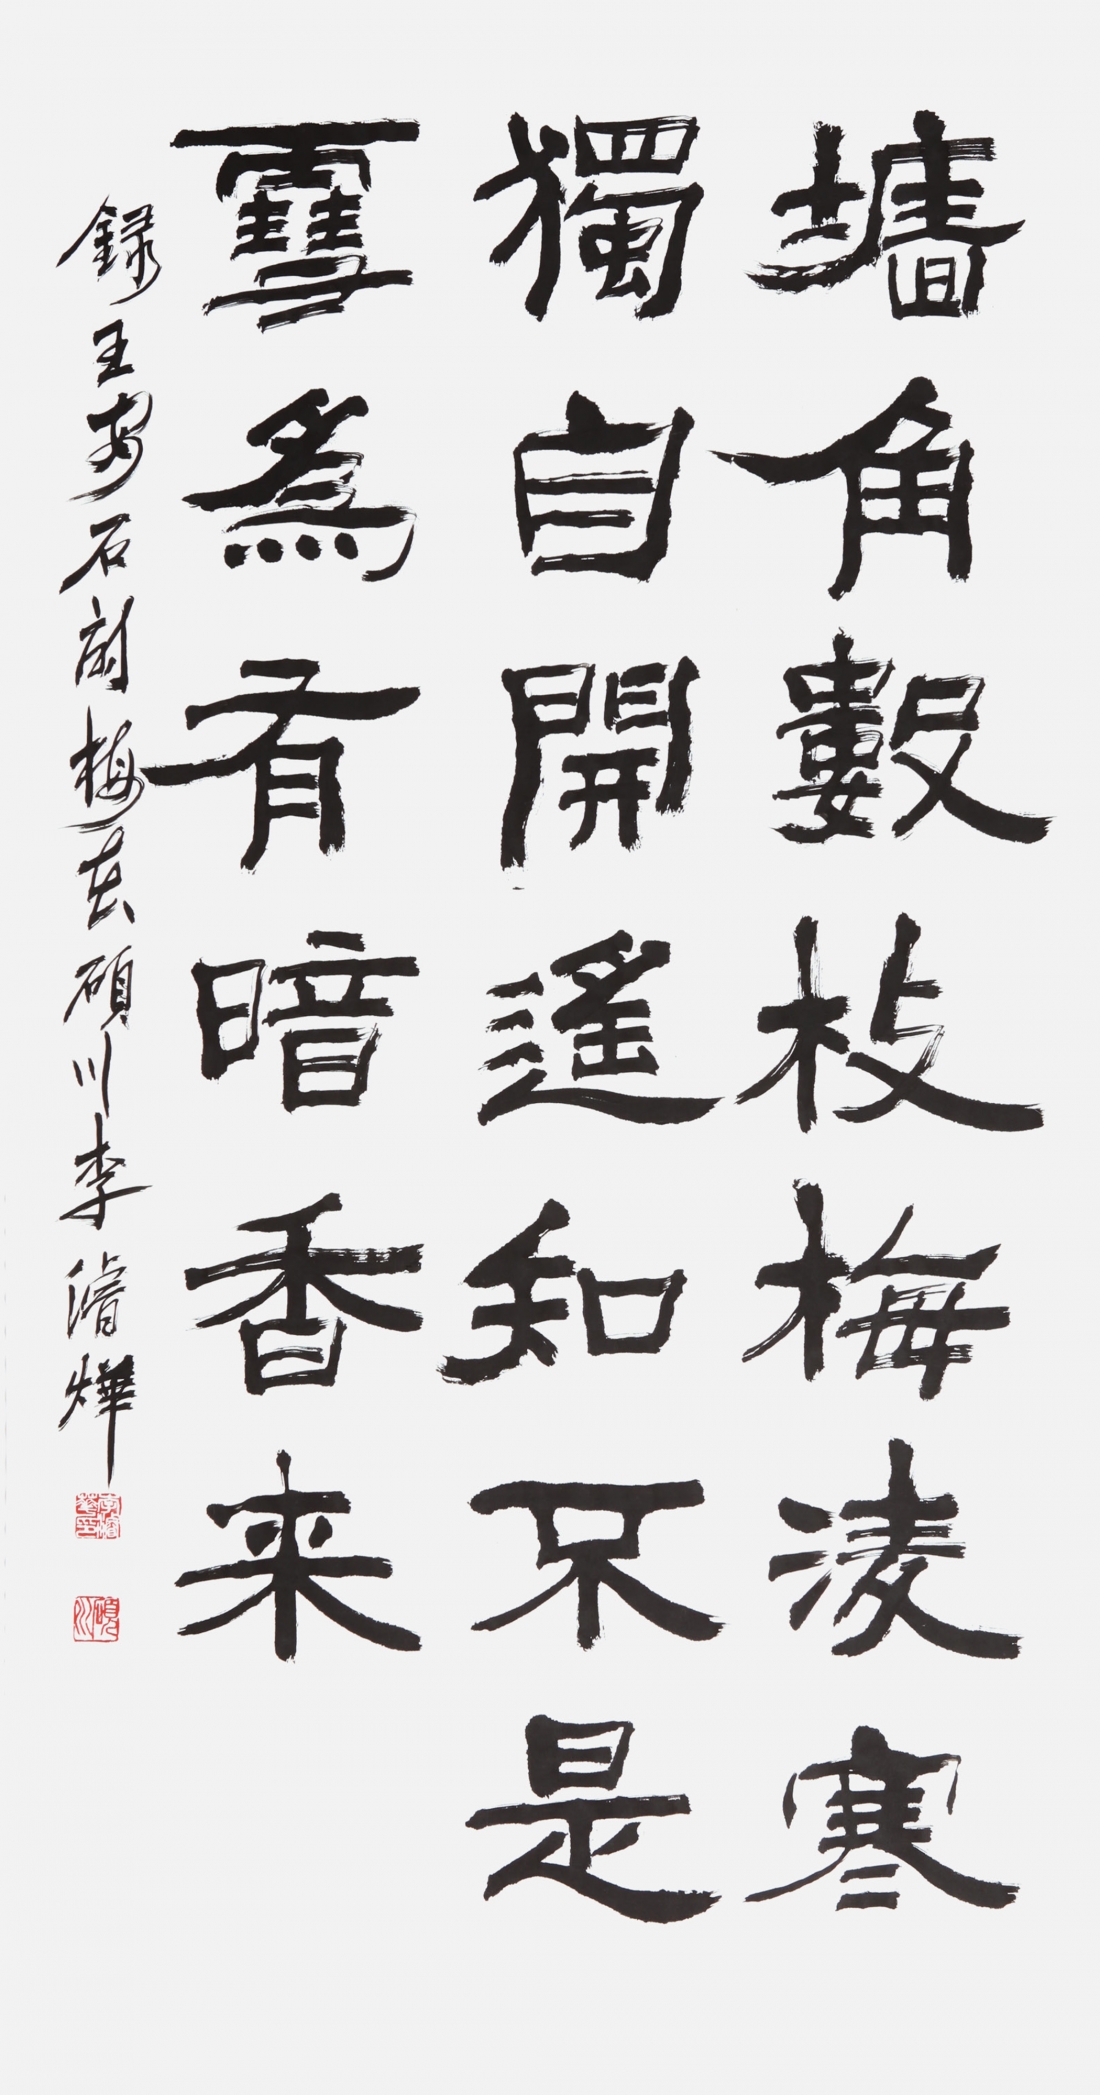 墻角數枝梅凌寒
獨自開遙知不是
雪為有暗香来
錄王安石詩梅花碩川李濬燁
碩川